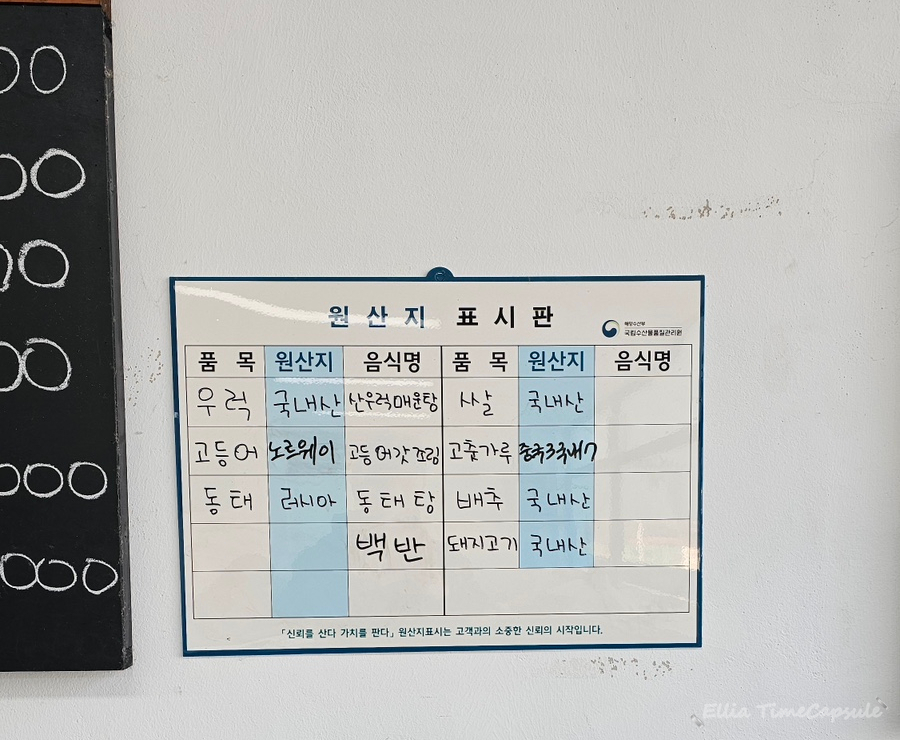 원산지 표시판
해양수산부
국립수산물품질관리원
품 목 원산지 음식명 품 목 원산지 음식명
우럭 국내산 산우럭매운탕 쌀 국내산
고등어 노르웨이 고등어갓조림 고춧가루 중국3국내7
동태 러시아 동태탕 배추 국내산
백반 돼지고기 국내산
「신뢰를 산다 가치를 판다」 원산지표시는 고객과의 소중한 신뢰의 시작입니다.
00
00
00
00
000
000
Ellia TimeCapsule